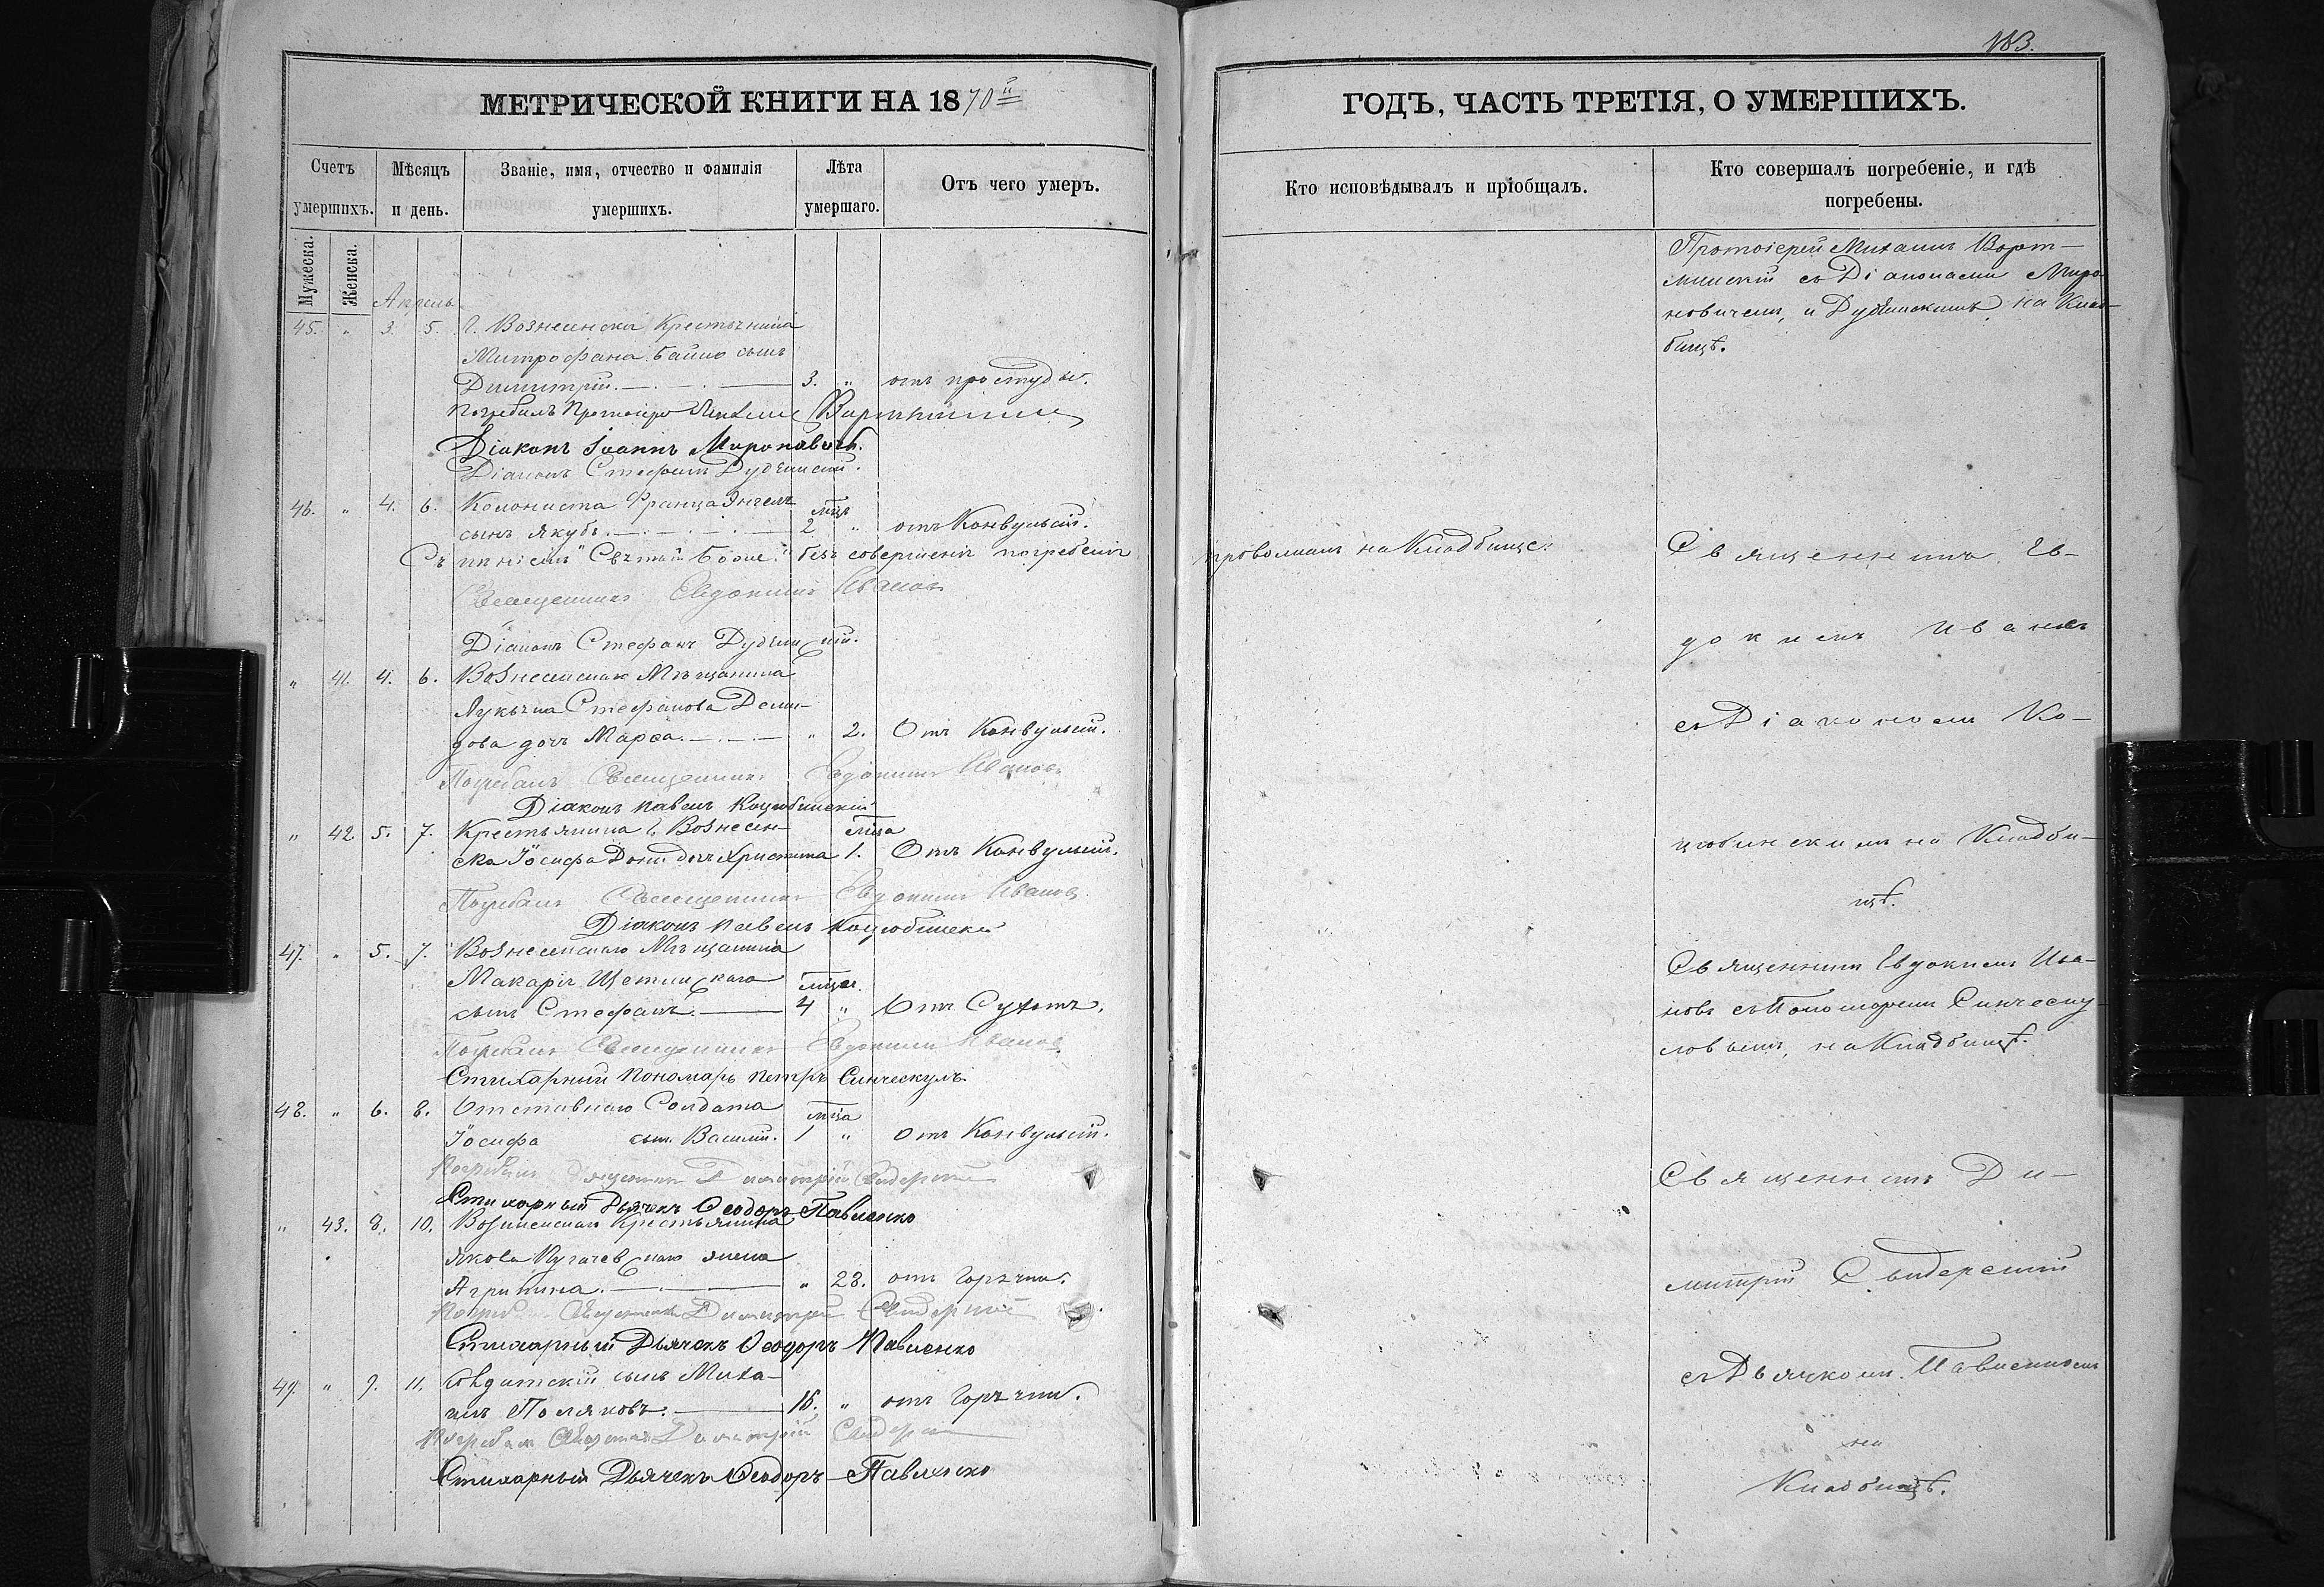 183.
МЕТРИЧЕСКОЙ КНИГИ НА 1870й
ГОДЪ, ЧАСТЬ ТРЕТІЯ, О УМЕРШИХЪ.
Счетъ умершихъ.
Мѣсяцъ и день.
Званіе, имя, отчество и фамилія умершихъ.
Лѣта умершаго.
Отъ чего умеръ.
Кто исповѣдывалъ и пріобщалъ.
Кто совершалъ погребеніе, и гдѣ погребены.
Мужеска.
Женска.
Апрель
45. " 3. 5. г. Вознесенска Крестьянина
Митрофана Байло сынъ
Димитрій. 3. " отъ простуды.
Погребалъ Протоіерей Михаилъ
Діаконъ Іоаннъ Мироновичъ.
Діаконъ Стефанъ Дубинскій.
Протоіерей Михаилъ Ворт-
минскій съ Діаконами Миро-
новичемъ, и Дубинскимъ на Клад-
бищѣ.
46. " 4. 6. Колониста Франца Энгель
сынъ Якубъ. мца 2 " отъ Конвульсій.
Съ пѣніемъ "Святый Боже" безъ совершенія погребенія
провожалъ на Кладбище.
Священникъ Евдокимъ Ивановъ
Діаконъ Стефанъ Дубинскій.
" 41. 4. 6. Вознесенскаго Мѣщанина
Лукьяна Стефанова Деми-
дова дочь Марѳа. " 2. Отъ Конвульсій.
Погребалъ Священникъ Евдокимъ Ивановъ
Діаконъ Павелъ Коцюбинскій
" 42. 5. 7. Крестьянина г. Вознесен-
ска Іосифа дочь Христина мца 1. Отъ Конвульсій.
Погребалъ Священникъ Евдокимъ Ивановъ
Діаконъ Павелъ Коцюбинскій
Священникъ Ев-
докимъ Ивановъ
съ Діакономъ Ко-
цюбинскимъ на Кладби-
щѣ.
47. " 5. 7. Вознесенскаго Мѣщанина
Макарія Щетинскаго
сынъ Стефанъ. мца 4 " Отъ Сухотъ.
Погребалъ Священникъ Евдокимъ Ивановъ
Стихарный Пономарь Петръ Синческулъ
Священникъ Евдокимъ Ива-
новъ съ Пономаремъ Синческу-
ловымъ, на Кладбищѣ.
48. " 6. 8. Отставнаго Солдата
Іосифа сынъ Василій. мца 1 " Отъ Конвульсій.
Погребалъ Священникъ Димитрій Свидерскій
Стихарный Дьячекъ Ѳеодоръ Павленко
" 43. 8. 10. Вознесенскаго Крестьянина
Якова Пугачевскаго жена
Агрипина. " 28. отъ Горячки.
Священникъ Димитрій Свидерскій
Стихарный Дьячекъ Ѳеодоръ Павленко
49. " 9. 11. Солдатскій сынъ Миха-
илъ Поляковъ. 18. " отъ Горячки.
Погребалъ Священникъ Димитрій Свидерскій
Стихарный Дьячекъ Ѳеодоръ Павленко
Священникъ Ди-
митрій Свидерскій
съ Дьячкомъ Павленкомъ
на
Кладбищѣ.